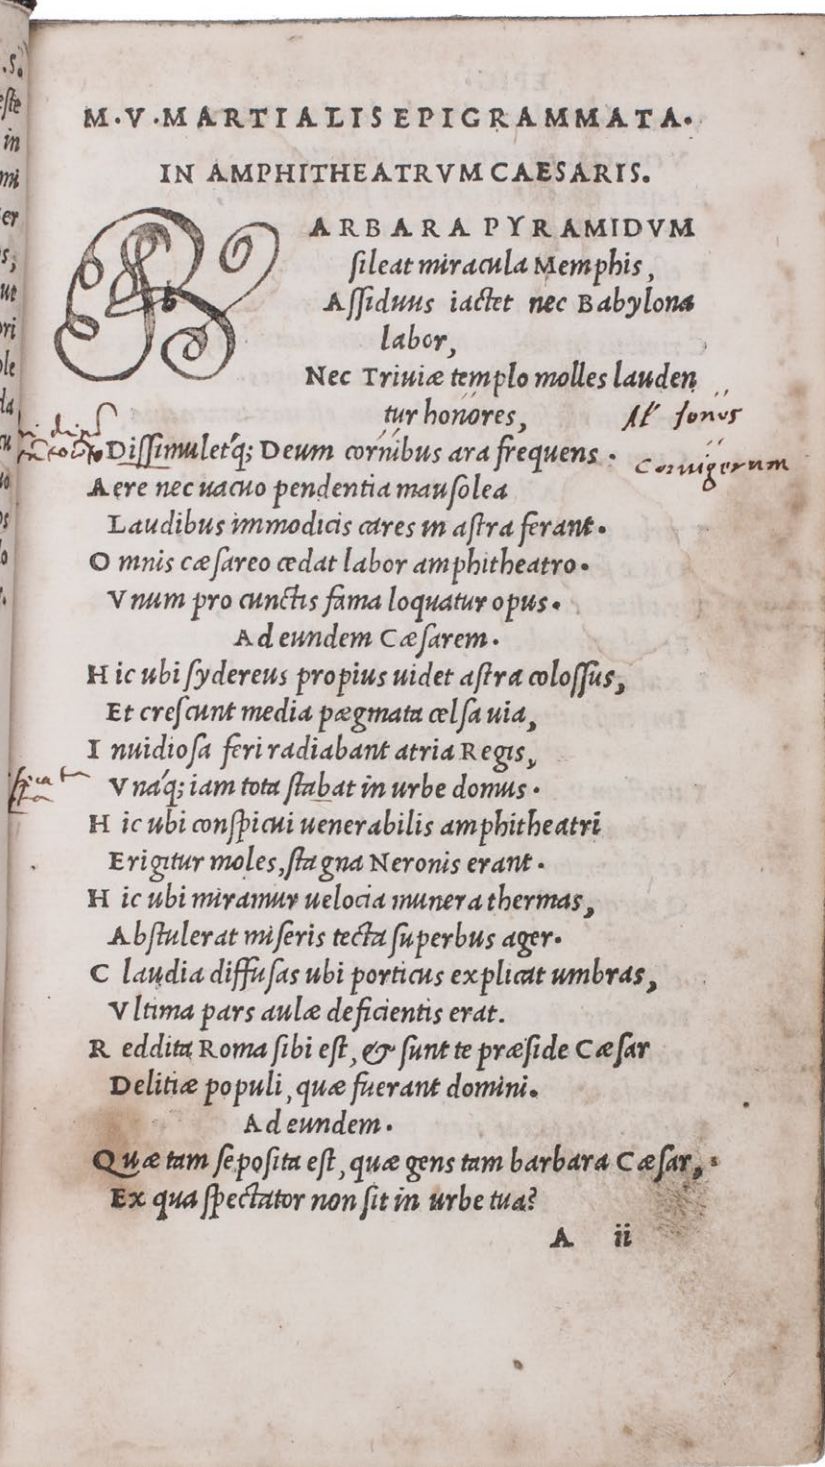 M.V.MARTIALIS EPIGRAMMATA.
IN AMPHITHEATRVM CAESARIS.
BARBARA PYRAMIDVM
ſileat miracula Memphis,
Aſſiduus iactet nec Babylona
labor,
Nec Triuiæ templo molles lauden
tur honores,
Diſſimuletq́; Deum cornibus ara frequens.
Cornigerum
Aere nec uacuo pendentia mauſolea
Laudibus immodicis cares in aſtra ferant.
Omnis cæſareo cedat labor amphitheatro.
Vnum pro cunctis fama loquatur opus.
Ad eundem Cæſarem.
Hic ubi ſydereus propius uidet aſtra coloſſus,
Et creſcunt media pægmata celſa uia,
Inuidioſa feri radiabant atria Regis,
Vnaq́; iam tota ſtabat in urbe domus.
Hic ubi conſpicui uenerabilis amphitheatri
Erigitur moles, ſtagna Neronis erant.
Hic ubi miramur uelocia munera thermas,
Abſtulerat miſeris tecta ſuperbus ager.
Claudia diffuſas ubi porticus explicat umbras,
Vltima pars aulæ deficientis erat.
Reddita Roma ſibi eſt, & ſunt te præſide Cæſar
Delitiæ populi, quæ fuerant domini.
Ad eundem.
Quæ tam ſepoſita eſt, quæ gens tam barbara Cæſar,
Ex qua ſpectator non ſit in urbe tua?
A ii